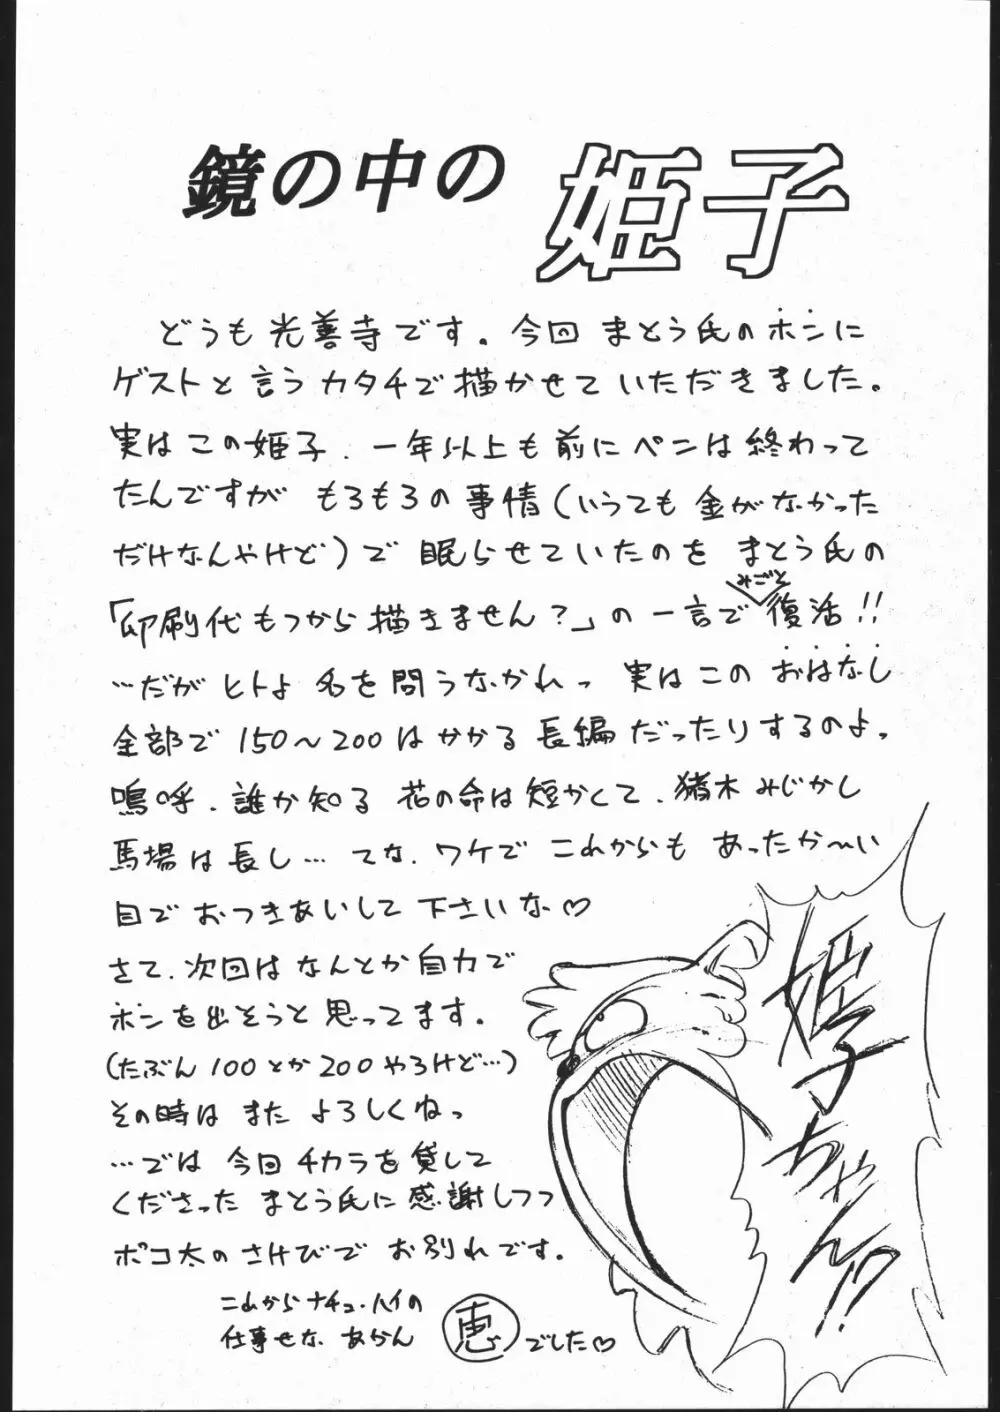 鏡の中の 姫子
どうも光善寺です。今回 まとう氏のホンに
ゲストと言うカタチで描かせていただきました。
実はこの姫子、一年以上も前にペンは終わって
たんですが もろもろの事情(いうても金がなかった
だけなんやけど)で 眠らせていたのを まとう氏の
「印刷代もつから描きません?」の一言で みごと 復活!!
…だがヒトよ 名を問うなかれっ 実はこの おはなし
全部で 150〜200はかかる長編だったりするのよっ
嗚呼、誰か知る 花の命は短かくて、猪木みじかし
馬場は長し… てな、ワケで これからも あったか〜い
目で おつきあいして 下さいな♡
さて、次回は なんとか自力で
ホンを出そうと思ってます。
(たぶん 100とか200やろけど…)
その時は また よろしくねっ
…では 今回 チカラを貸して
くださった まとう氏に 感謝しつつ
ポコ太のさけびで お別れです。
これからナチュ・ハイの
仕事せな あかん 恵 でした♡
姫子ちゃん!?